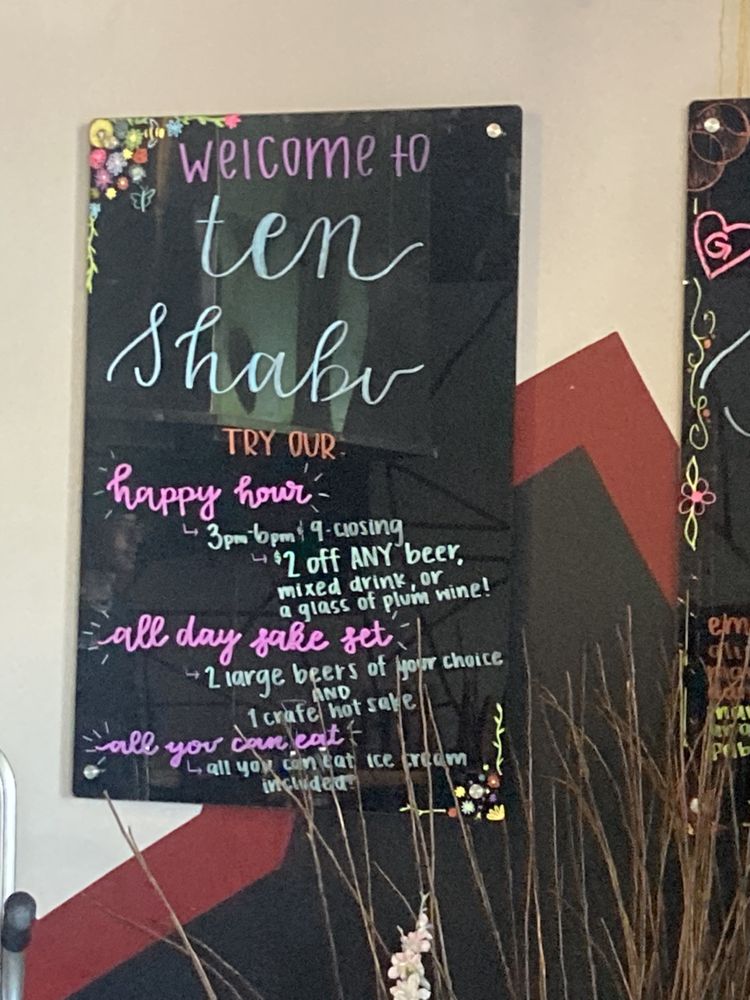 welcome to
ten
Shabu
TRY OUR
happy hour
3pm-6pm & 9-closing
$2 off ANY beer,
mixed drink, or
a glass of plum wine!
all day sake set
2 large beers of your choice
AND
1 crafe hot sake
all you can eat
all you can eat ice cream
included!
G